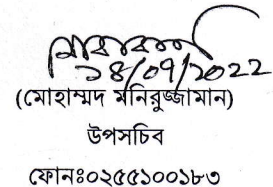 ১৪/০৭/২০২২
(মোহাম্মদ মনিরুজ্জামান)
উপসচিব
ফোনঃ০২৫৫১০০১৮৩